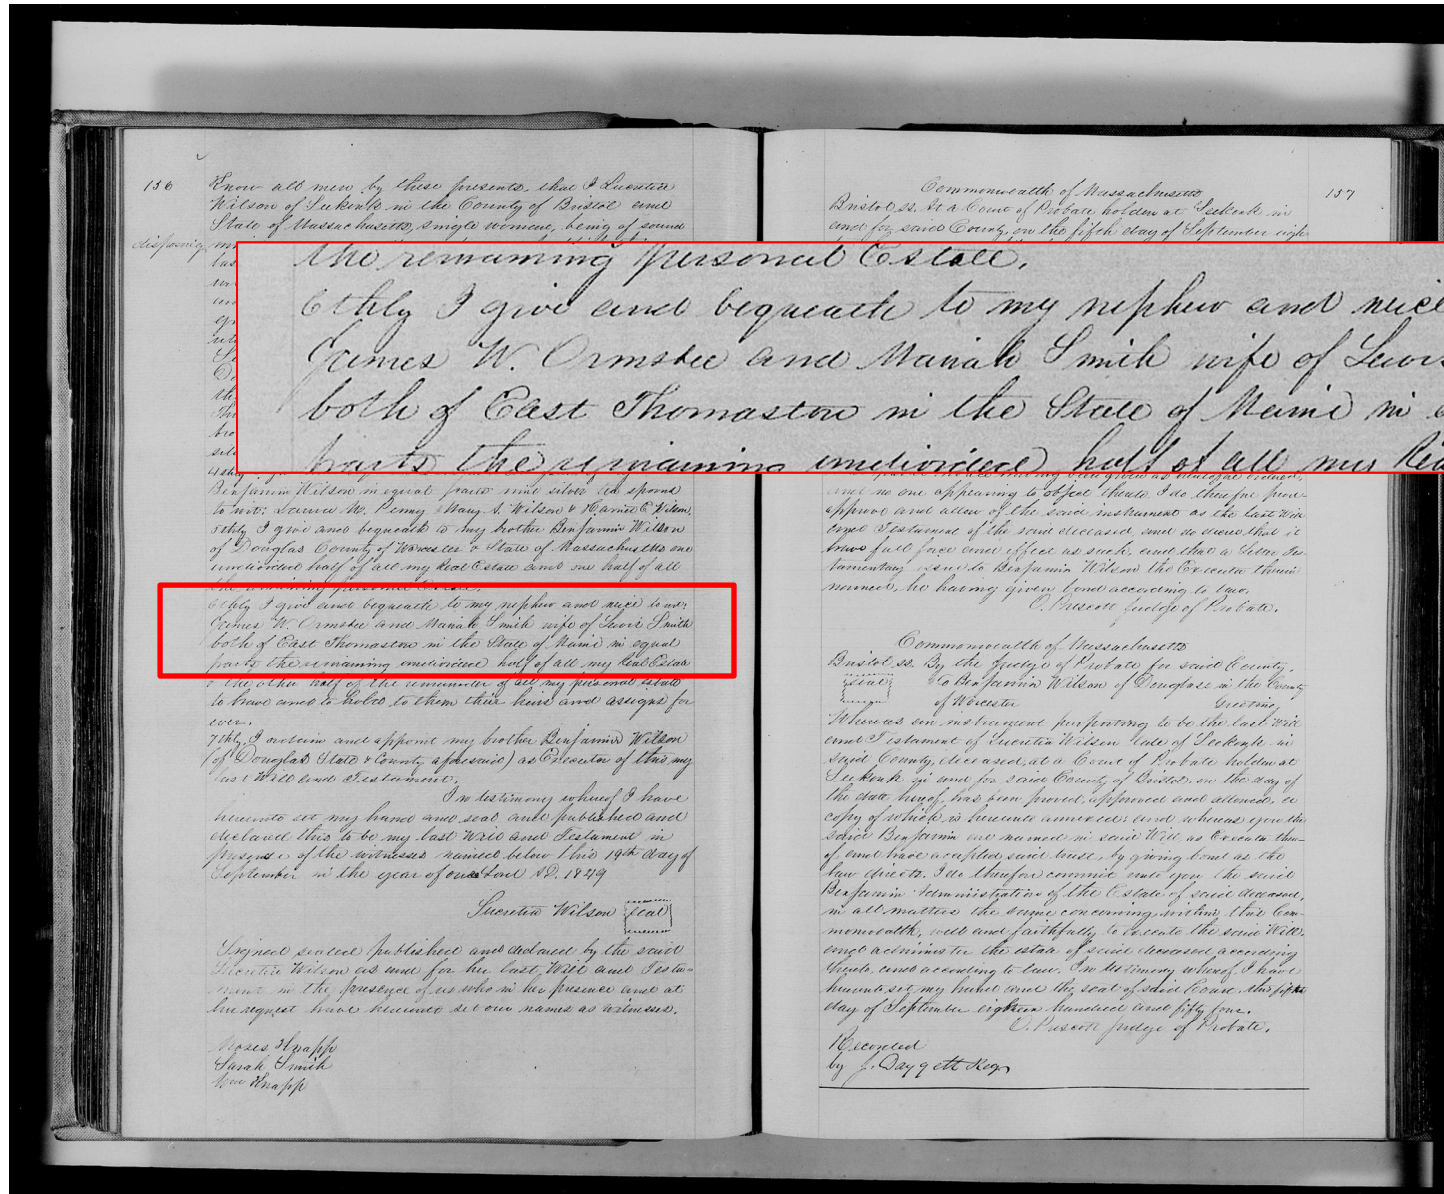 156
Know all men by these presents, that I Lucretia
Wilson of Seekonk in the County of Bristol and
State of Massachusetts, single woman, being of sound
disposing
the remaining personal Estate.
6thly I give and bequeath to my nephew and niece
James W. Ormsbee and Mariah Smith wife of Lewis
both of East Thomaston in the State of Maine in
parts the remaining undivided half of all my Rea
Benjamin Wilson in equal parts nine silver tea spoons
to wit: Laura M. Penny, Mary S. Wilson & Harriet E. Wilson.
5thly I give and bequeath to my brother Benjamin Wilson
of Douglas County of Worcester & State of Massachusetts one
undivided half of all my Real Estate and one half of all
the remaining personal Estate.
6thly I give and bequeath to my nephew and niece to wit,
James W. Ormsbee and Mariah Smith wife of Lewis Smith
both of East Thomaston in the State of Maine in equal
parts the remaining undivided half of all my Real Estate
& the other half of the remainder of all my personal Estate
to have and to hold to them their heirs and assigns for
ever.
7thly I ordain and appoint my brother Benjamin Wilson
(of Douglas State & County aforesaid) as Executor of this my
last Will and Testament.
In testimony whereof I have
hereunto set my hand and seal and published and
declared this to be my last Will and Testament in
presence of the witnesses named below this 19th day of
September in the year of our Lord AD. 1849
Lucretia Wilson seal
Signed sealed published and declared by the said
Lucretia Wilson as and for her last Will and Testa-
ment in the presence of us who in her presence and at
her request have hereunto set our names as witnesses.
Moses Knapp
Sarah Smith
Knapp
157
Commonwealth of Massachusetts
Bristol ss. At a Court of Probate holden at Seekonk in
and for said County, on the fifth day of September eigh
and no one appearing to object thereto, I do therefore prove
approve and allow of the said instrument as the last Will
and Testament of the said deceased, and do decree that it
have full force and effect as such, and that a Letter Tes-
tamentary issue to Benjamin Wilson the Executor therein
named, he having given bond according to law.
O. Prescott Judge of Probate.
Commonwealth of Massachusetts
Bristol ss. By the Judge of Probate for said County.
seal To Benjamin Wilson of Douglass in the County
of Worcester Greeting
Whereas an instrument purporting to be the last Will
and Testament of Lucretia Wilson late of Seekonk in
said County, deceased, at a Court of Probate holden at
Seekonk in and for said County of Bristol, on the day of
the date hereof, has been proved, approved and allowed, a
copy of which is hereunto annexed: and whereas you the
said Benjamin are named in said Will, as Executor there-
of and have accepted said trust, by giving bond as the
law directs. I do therefore commit unto you the said
Benjamin Administration of the Estate of said deceased,
in all matters the same concerning, within this Com-
monwealth, well and faithfully to execute the said Will,
and administer the estate of said deceased according
thereto, and according to law. In testimony whereof, I have
hereunto set my hand and the seal of said Court, this fifth
day of September eighteen hundred and fifty four.
O. Prescott Judge of Probate.
Recorded
by J. Daggett Regr